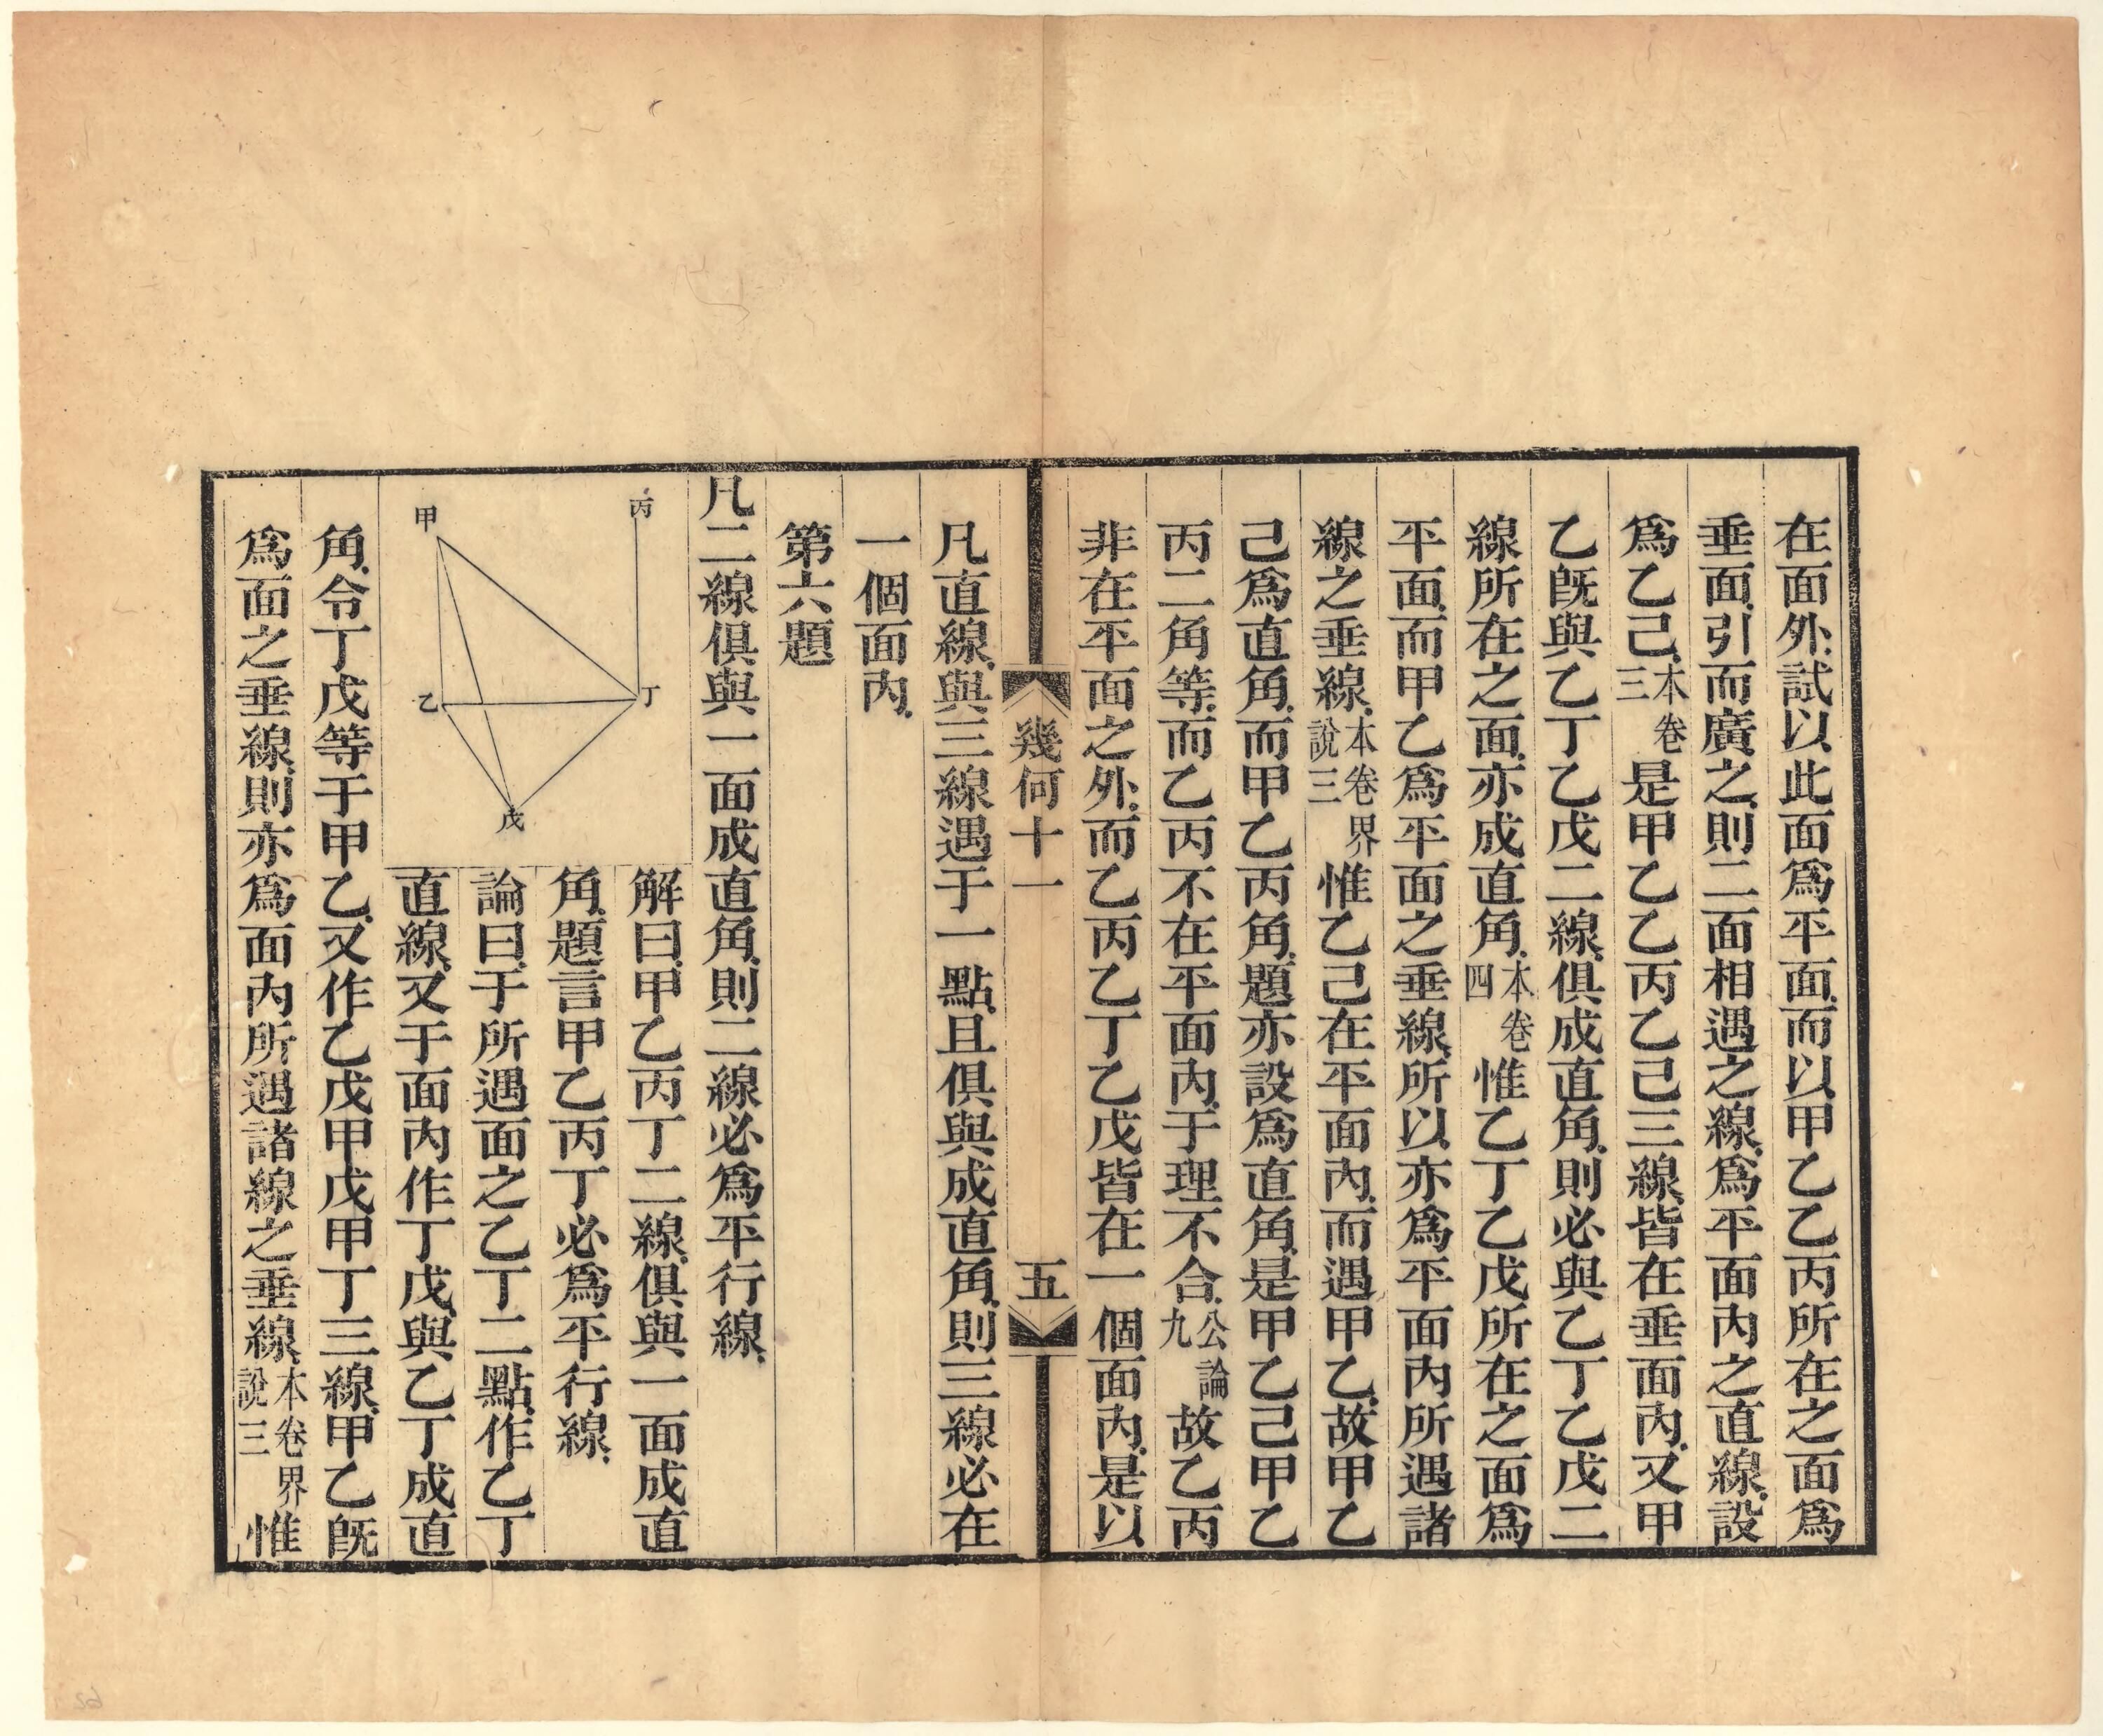 在面外、試以此面爲平面、而以甲乙乙丙所在之面爲
垂面、引而廣之、則二面相遇之線、爲平面內之直線、設
爲乙己、本卷三是甲乙乙丙乙己三線、皆在垂面內、又甲
乙旣與乙丁乙戊二線、俱成直角、則必與乙丁乙戊二
線所在之面、亦成直角、本卷四惟乙丁乙戊所在之面爲
平面、而甲乙爲平面之垂線、所以亦爲平面內所遇諸
線之垂線、本卷界說三惟乙己在平面內、而遇甲乙、故甲乙
己爲直角、而甲乙丙角、題亦設爲直角、是甲乙己甲乙
丙二角等、而乙丙不在平面內、于理不合、公論九故乙丙
非在平面之外、而乙丙乙丁乙戊皆在一個面內、是以
幾何十一
五
凡直線、與三線遇于一點、且俱與成直角、則三線必在
一個面內、
第六題
凡二線俱與一面成直角、則二線必爲平行線、
丙
甲
乙
丁
戊
解曰、甲乙丙丁二線、俱與一面成直
角、題言甲乙丙丁必爲平行線、
論曰、于所遇面之乙丁二點、作乙丁
直線、又于面內作丁戊、與乙丁成直
角、令丁戊等于甲乙、又作乙戊甲戊甲丁三線、甲乙旣
爲面之垂線、則亦爲面內所遇諸線之垂線、本卷界說三惟